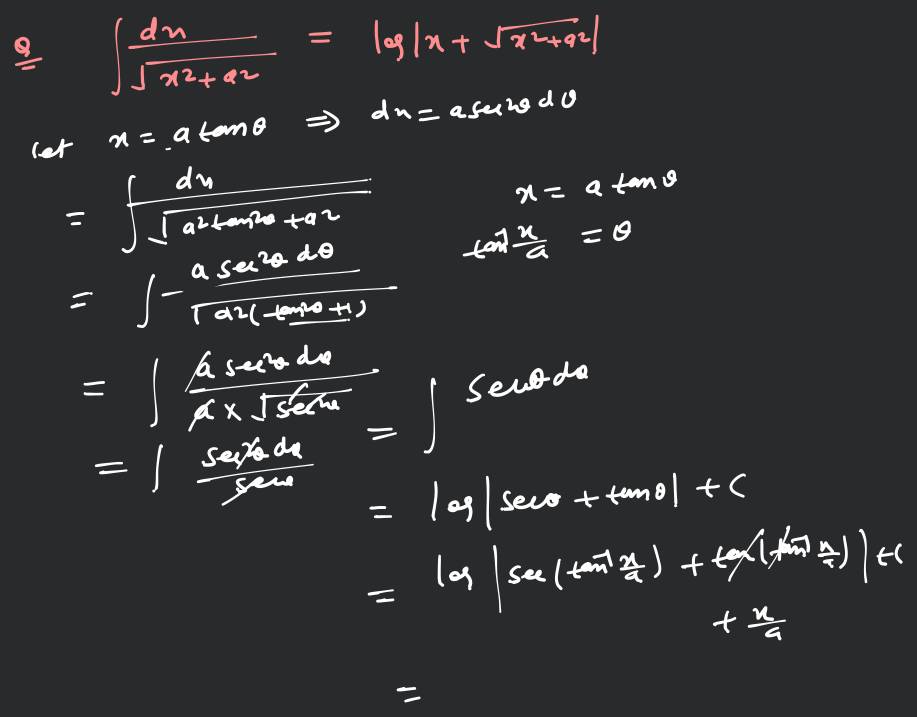 Q ∫ dx / √(x2+a2) = log |x + √(x2+a2)|
let x = a tanθ ⇒ dx = a sec2θ dθ
= ∫ dx / √(a2tan2θ + a2)
x = a tanθ
tan⁻¹ x/a = θ
= ∫ a sec2θ dθ / √(a2(tan2θ + 1))
= ∫ a sec2θ dθ / (a × √sec2θ)
= ∫ sec2θ dθ / secθ
= ∫ secθ dθ
= log |secθ + tanθ| + C
= log |sec(tan⁻¹ x/a) + tan(tan⁻¹ x/a)| + C
+ x/a
=